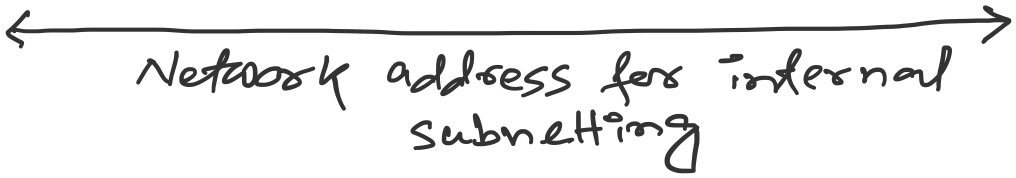 Network address for internal
subnetting